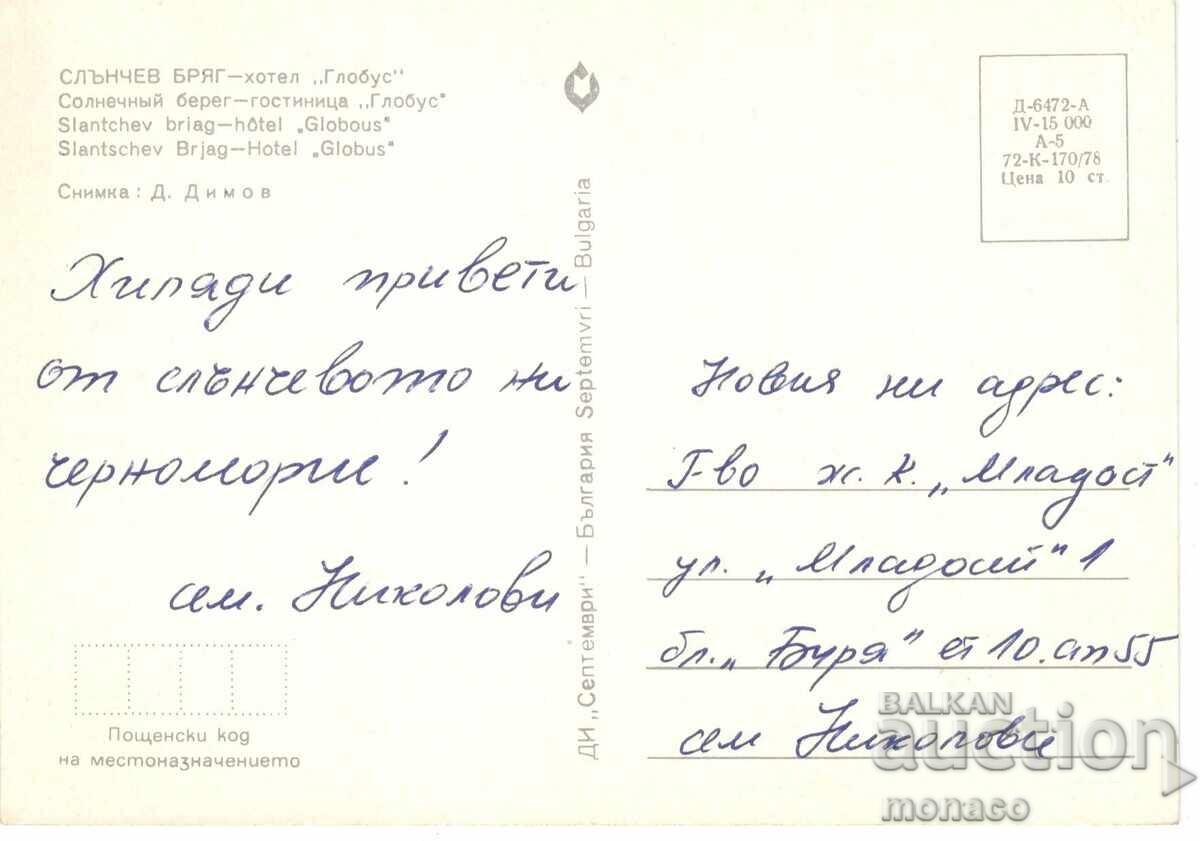 СЛЪНЧЕВ БРЯГ—хотел „Глобус"
Солнечный берег—гостиница „Глобус"
Slantchev briag—hôtel „Globous"
Slantschev Brjag—Hotel „Globus"
Снимка: Д. Димов
Хиляди привети
от слънчевото ни
черноморие!
сем. Николови
Пощенски код
на местоназначението
ДИ „Септември" — България Septemvri — Bulgaria
Д-6472-А
IV-15 000
А-5
72-К-170/78
Цена 10 ст.
Новия ни адрес:
Г-во ж.к. „Младост"
ул. „Младост" 1
бл. „Буря" ет 10. ап 55
сем Николови
BALKAN
auction
monaco